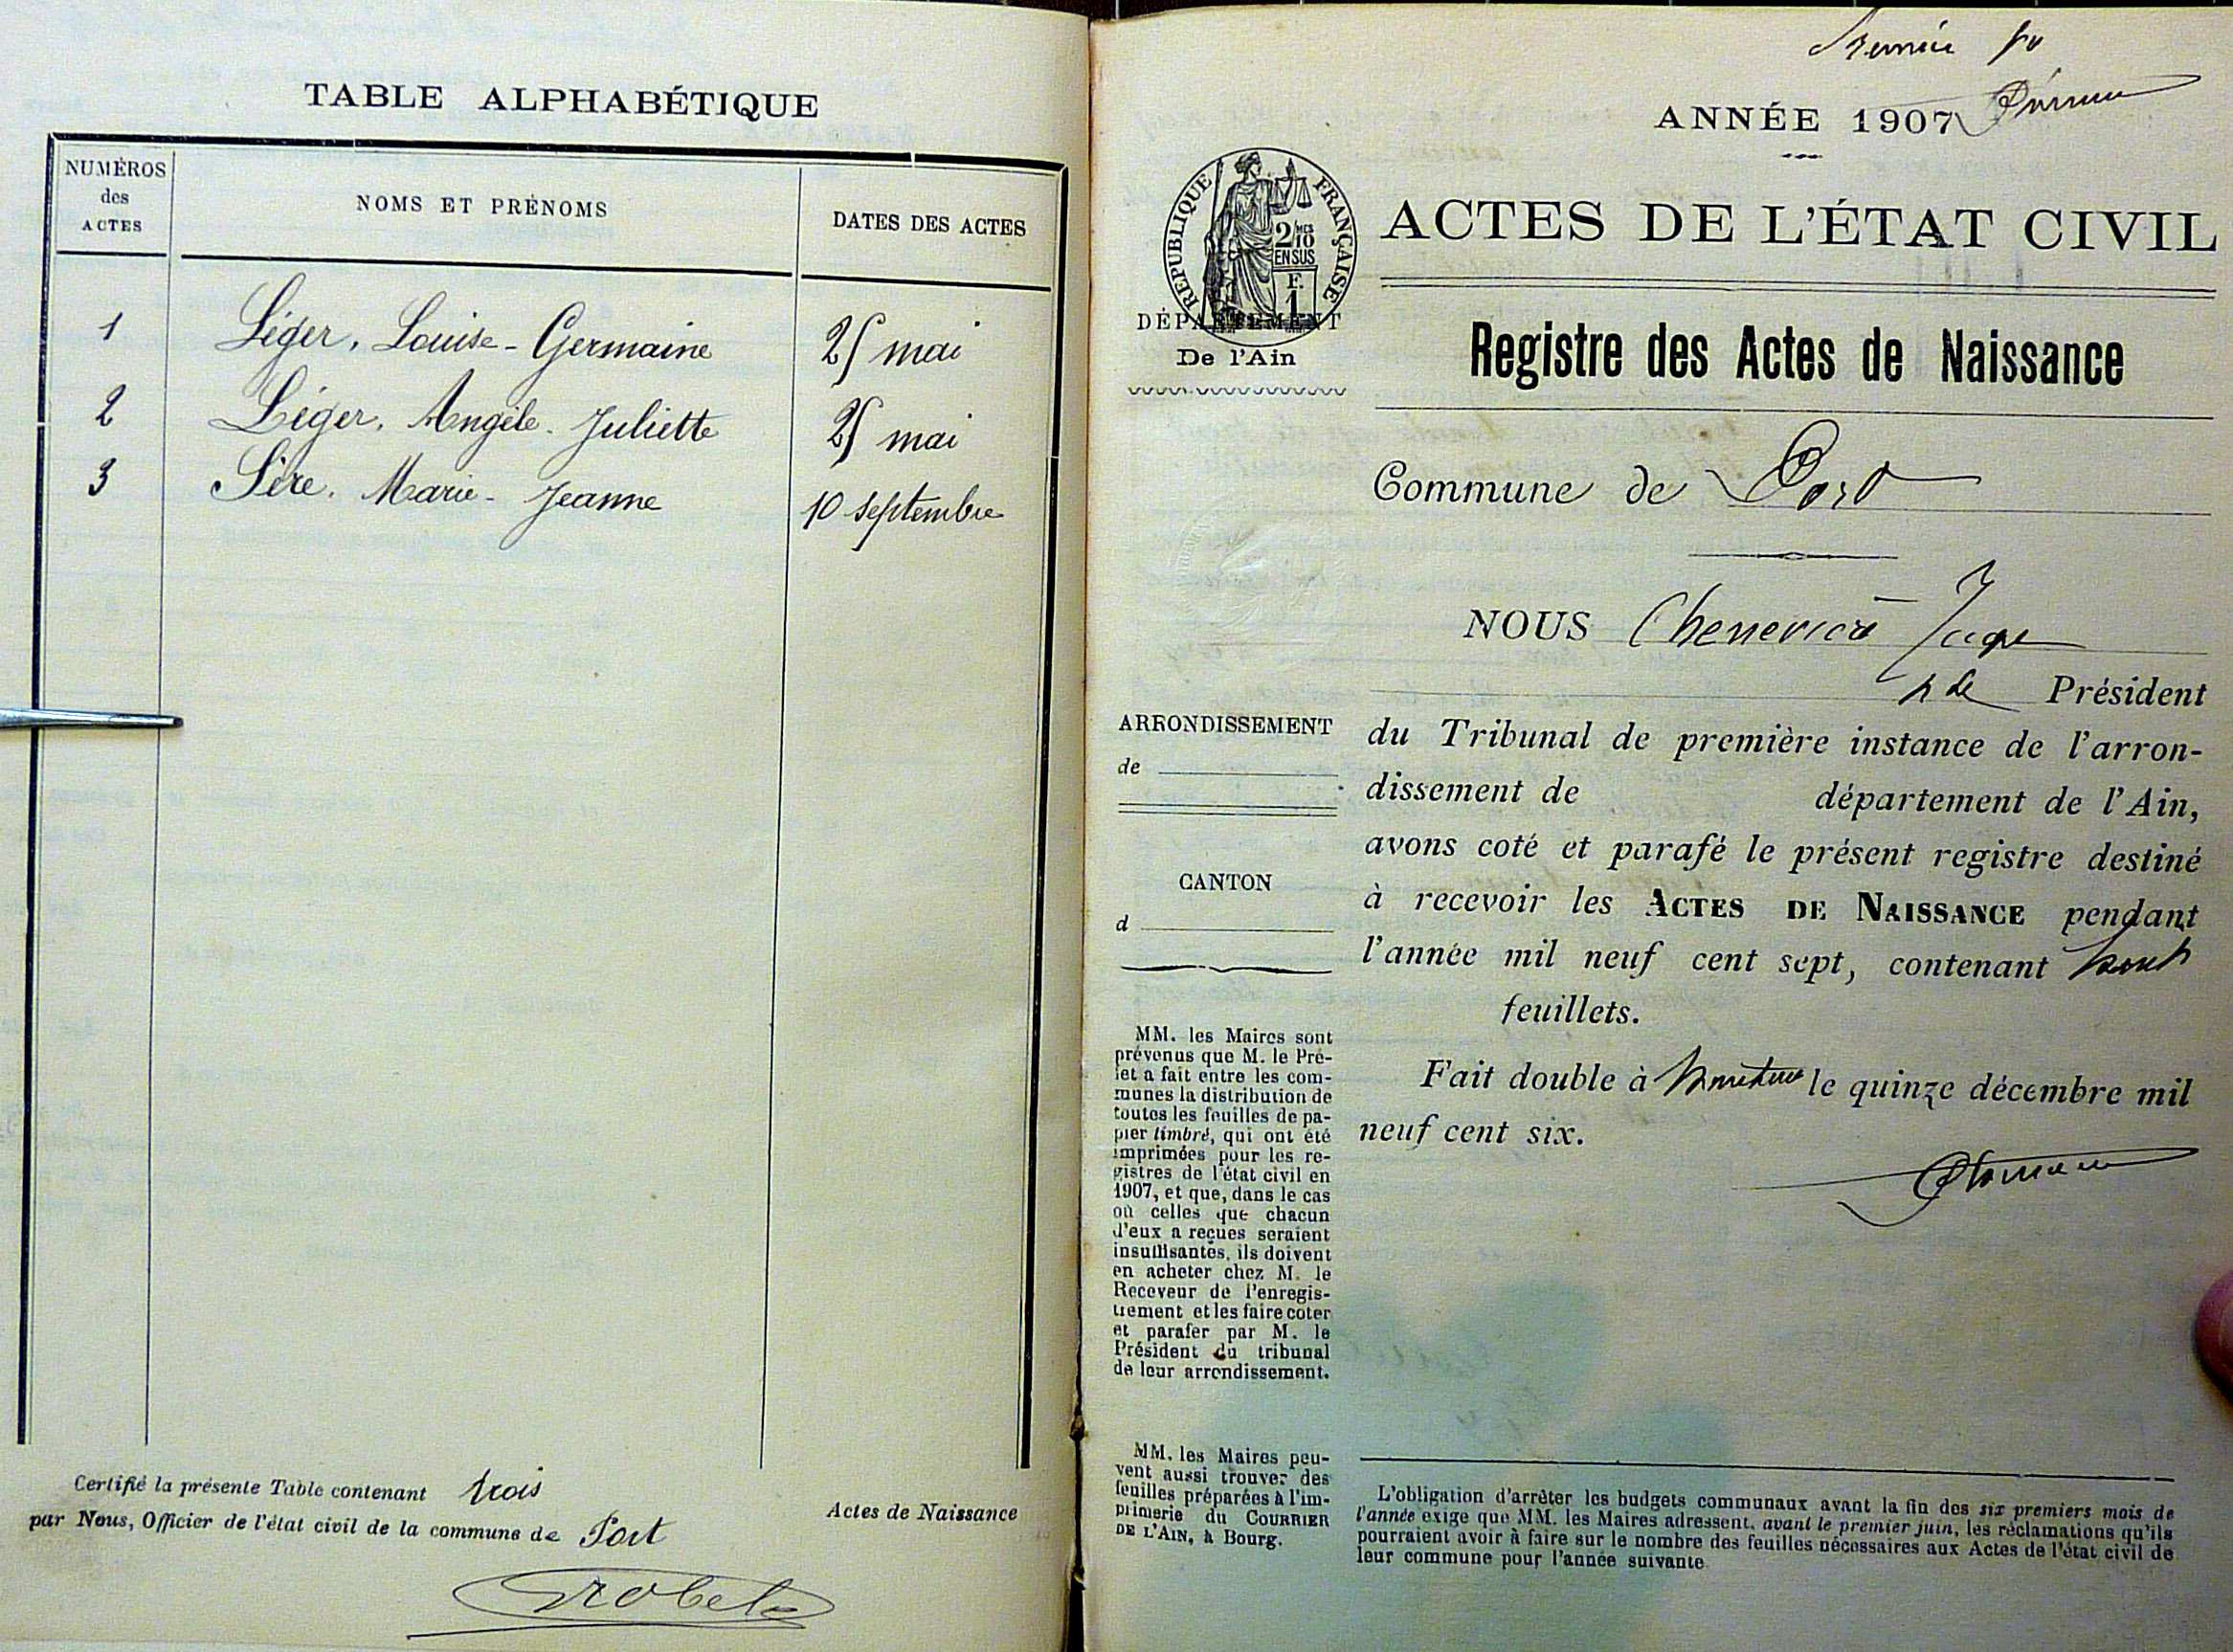 TABLE ALPHABÉTIQUE
NUMÉROS
des
ACTES
NOMS ET PRÉNOMS
DATES DES ACTES
1 Léger, Louise-Germaine 25 mai
2 Léger, Angèle-Juliette 25 mai
3 Sère, Marie-Jeanne 10 septembre
Certifié la présente Table contenant trois Actes de Naissance
par Nous, Officier de l'état civil de la commune de Port
ANNÉE 1907
RÉPUBLIQUE FRANÇAISE
2 MES
10
EN SUS
F.
1
ACTES DE L'ÉTAT CIVIL
DÉPARTEMENT
De l'Ain
Registre des Actes de Naissance
Commune de Port
NOUS
Président
ARRONDISSEMENT
de
CANTON
d
du Tribunal de première instance de l'arron-
dissement de département de l'Ain,
avons coté et parafé le présent registre destiné
à recevoir les ACTES DE NAISSANCE pendant
l'année mil neuf cent sept, contenant
feuillets.
Fait double à le quinze décembre mil
neuf cent six.
MM. les Maires sont
prévenus que M. le Pré-
fet a fait entre les com-
munes la distribution de
toutes les feuilles de pa-
pier timbré, qui ont été
imprimées pour les re-
gistres de l'état civil en
1907, et que, dans le cas
où celles que chacun
d'eux a reçues seraient
insuffisantes, ils doivent
en acheter chez M. le
Receveur de l'enregis-
trement et les faire coter
et parafer par M. le
Président du tribunal
de leur arrondissement.
MM. les Maires peu-
vent aussi trouver des
feuilles préparées à l'im-
primerie du COURRIER
DE L'AIN, à Bourg.
L'obligation d'arrêter les budgets communaux avant la fin des six premiers mois de
l'année exige que MM. les Maires adressent, avant le premier juin, les réclamations qu'ils
pourraient avoir à faire sur le nombre des feuilles nécessaires aux Actes de l'état civil de
leur commune pour l'année suivante.